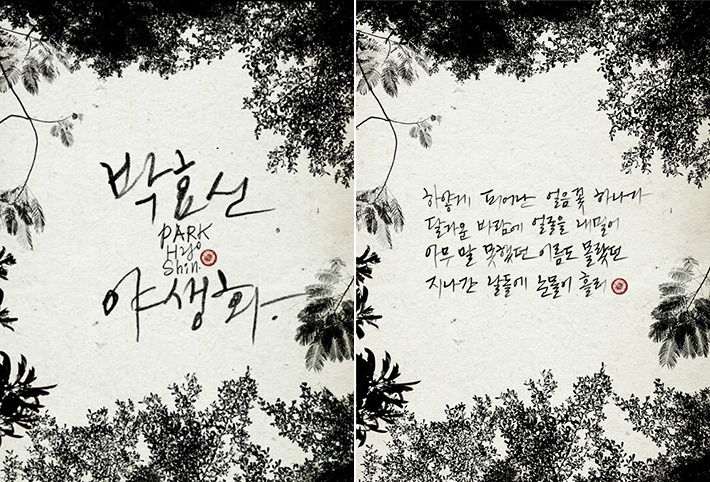 박효신
PARK
Hyo
Shin.
야생화.
하얗게 피어난 얼음꽃 하나가
달가운 바람에 얼굴을 내밀어
아무 말 못했던 이름도 몰랐던
지나간 날들에 눈물이 흘러